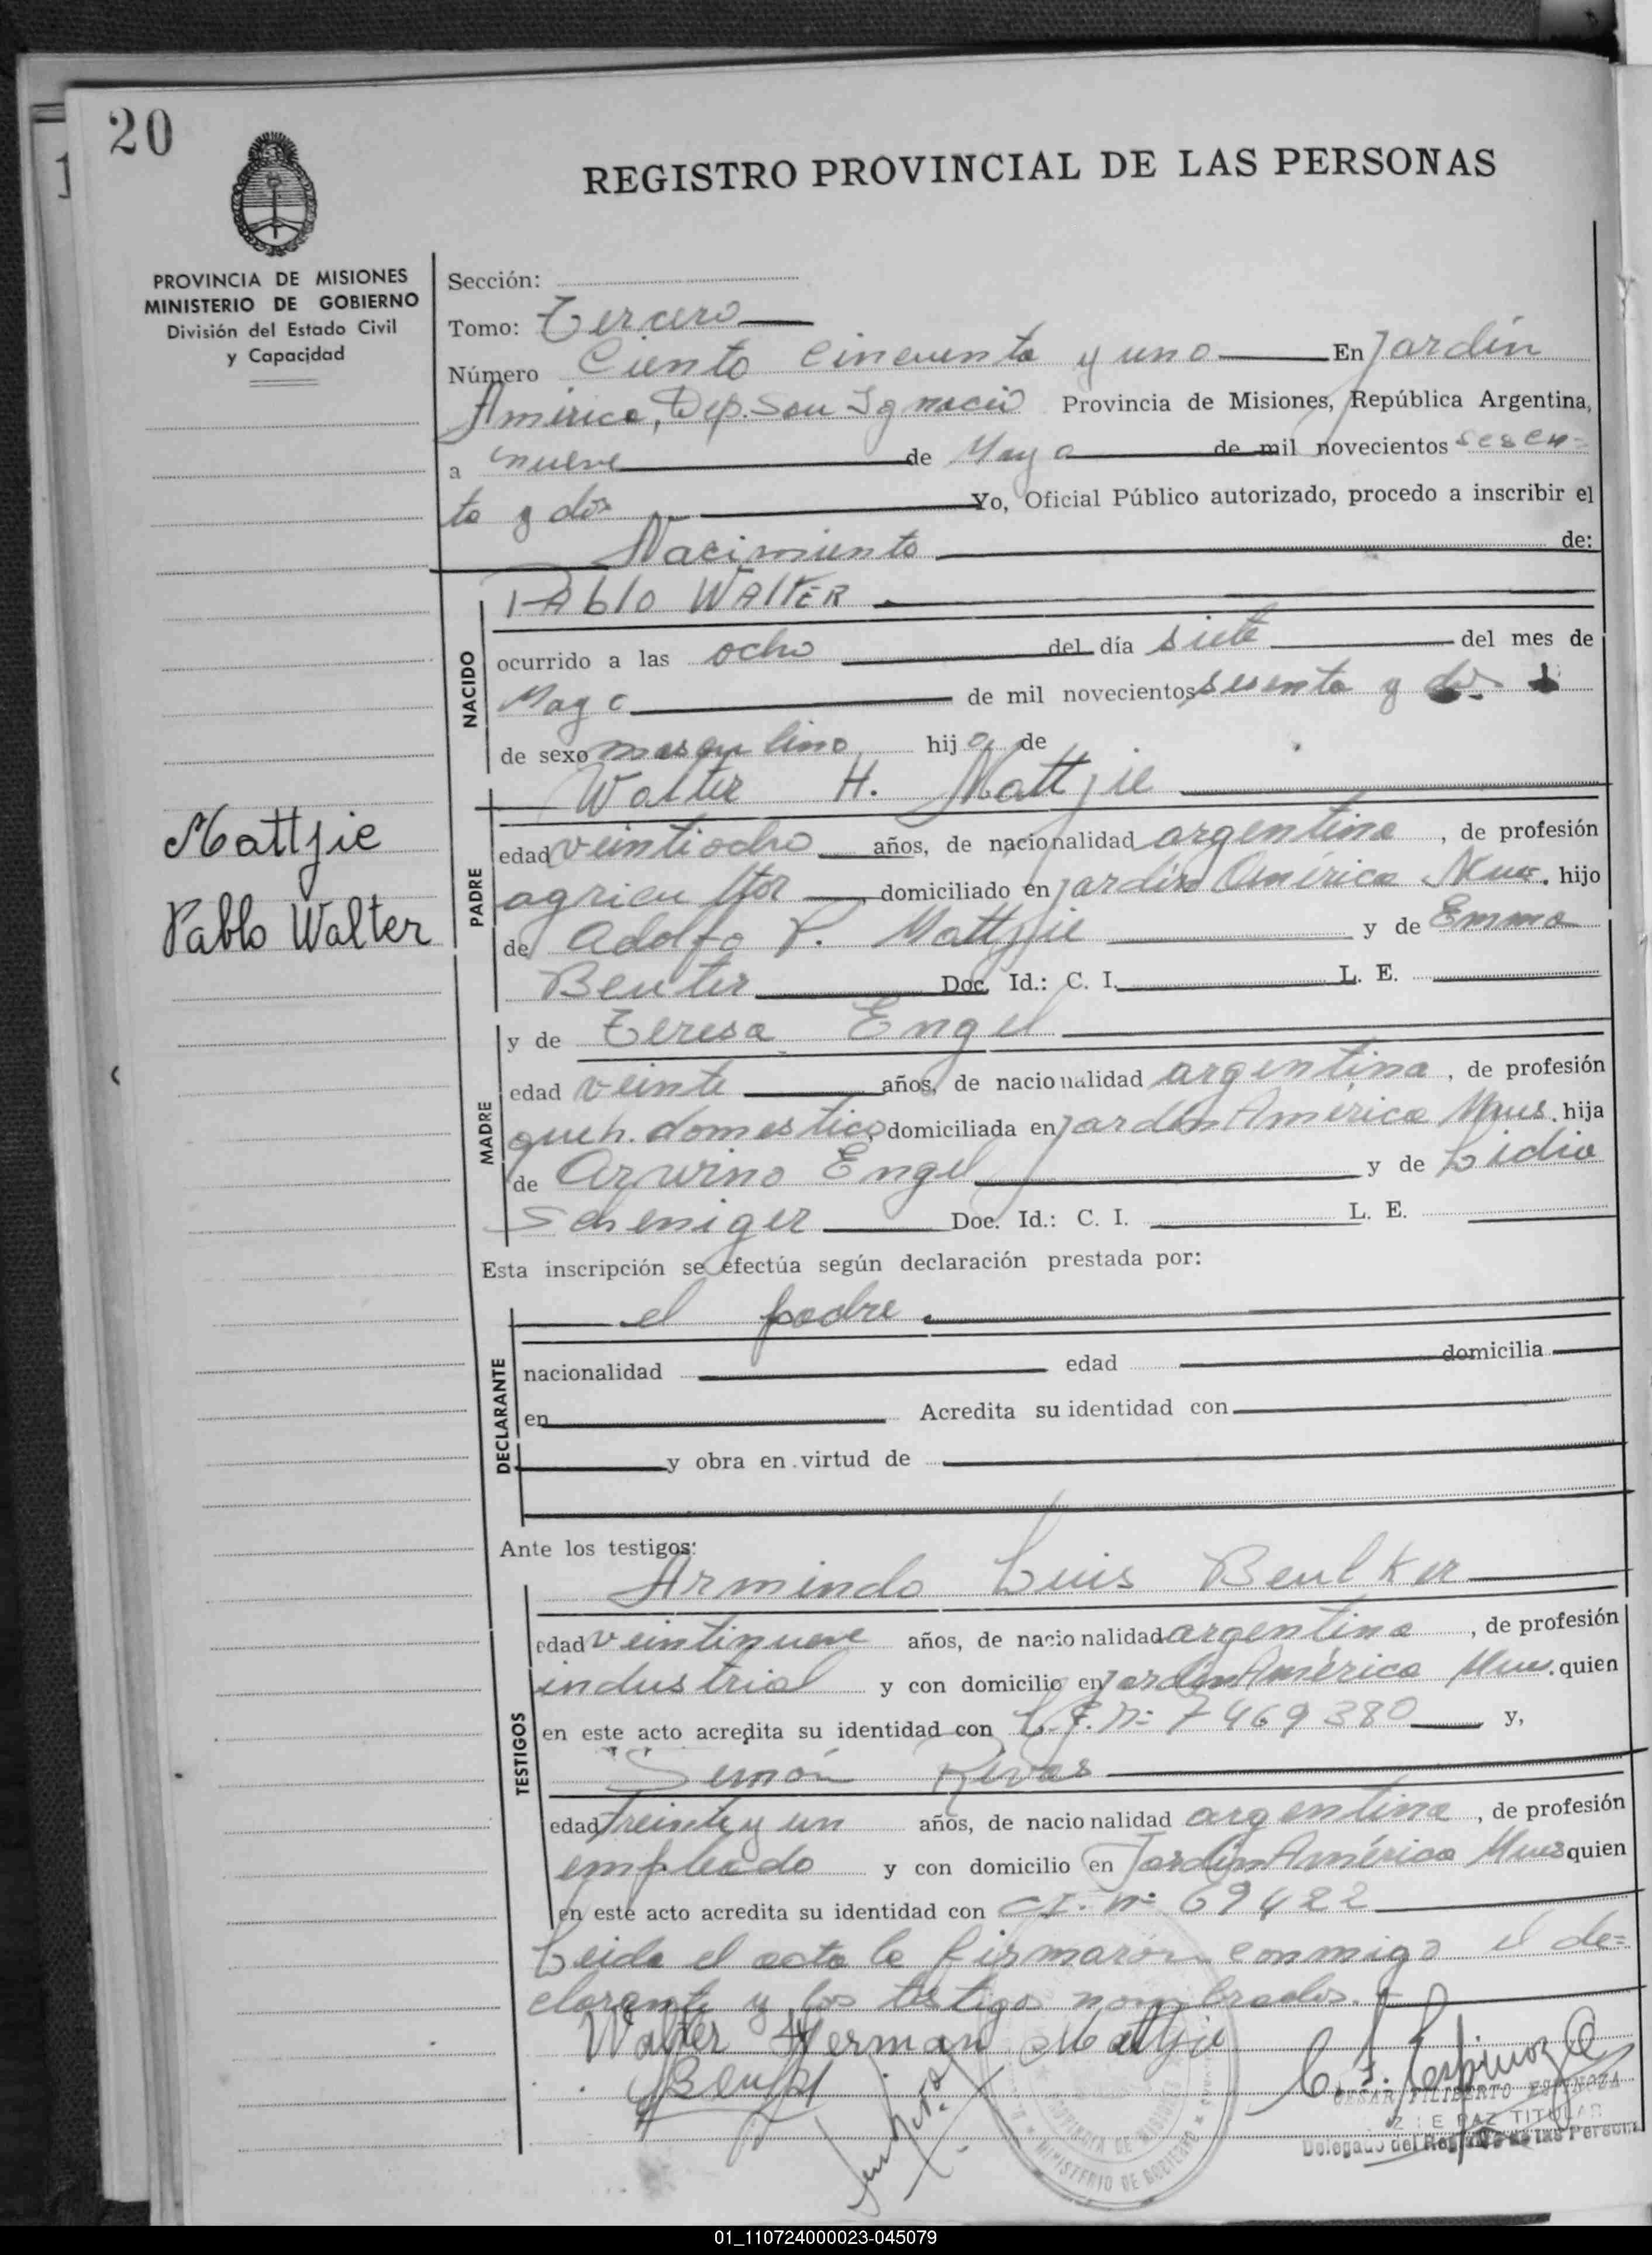 20
REGISTRO PROVINCIAL DE LAS PERSONAS
PROVINCIA DE MISIONES
MINISTERIO DE GOBIERNO
División del Estado Civil
y Capacidad
Sección:
Tomo: Tercero
Número Ciento cincuenta y uno En Jardín
América, Dep. San Ignacio Provincia de Misiones, República Argentina,
a nueve de Mayo de mil novecientos sesen=
ta y dos Yo, Oficial Público autorizado, procedo a inscribir el
Nacimiento de:
NACIDO
PAblo WAlTER
ocurrido a las ocho del día siete del mes de
Mayo de mil novecientos sesenta y dos
de sexo masculino hijo de
Walter H. Mattjie
Mattjie
Pablo Walter
PADRE
edad veintiocho años, de nacionalidad argentina, de profesión
agricultor, domiciliado en Jardín América Mnes. hijo
de Adolfo P. Mattjie y de Emma
Beuter Doc. Id.: C. I. L. E.
MADRE
y de Teresa Engel
edad veinte años, de nacionalidad argentina, de profesión
queh. domestico, domiciliada en Jardín América Mnes. hija
de Arwino Engel y de Lidia
Scheniger Doc. Id.: C. I. L. E.
Esta inscripción se efectúa según declaración prestada por:
DECLARANTE
el padre
nacionalidad edad domicilia
en Acredita su identidad con
y obra en virtud de
Ante los testigos:
TESTIGOS
Armindo Luis Beulker
edad veintinueve años, de nacionalidad argentina, de profesión
industrial y con domicilio en Jardín América Mnes. quien
en este acto acredita su identidad con nº 7469380 y,
Simón Rivas
edad treinta y un años, de nacionalidad argentina, de profesión
empleado y con domicilio en Jardín América Mnes quien
en este acto acredita su identidad con C.I. nº 69422
Leida el acta la firmaron conmigo el de=
clarante y los testigos nombrados.
Walter Herman Mattjie
C. F. Espinoza
CESAR FILIBERTO ESPINOZA
PAZ TITULAR
Delegado del Registro de las Personas
PROVINCIA DE MISIONES
MINISTERIO DE GOBIERNO
01_110724000023-045079